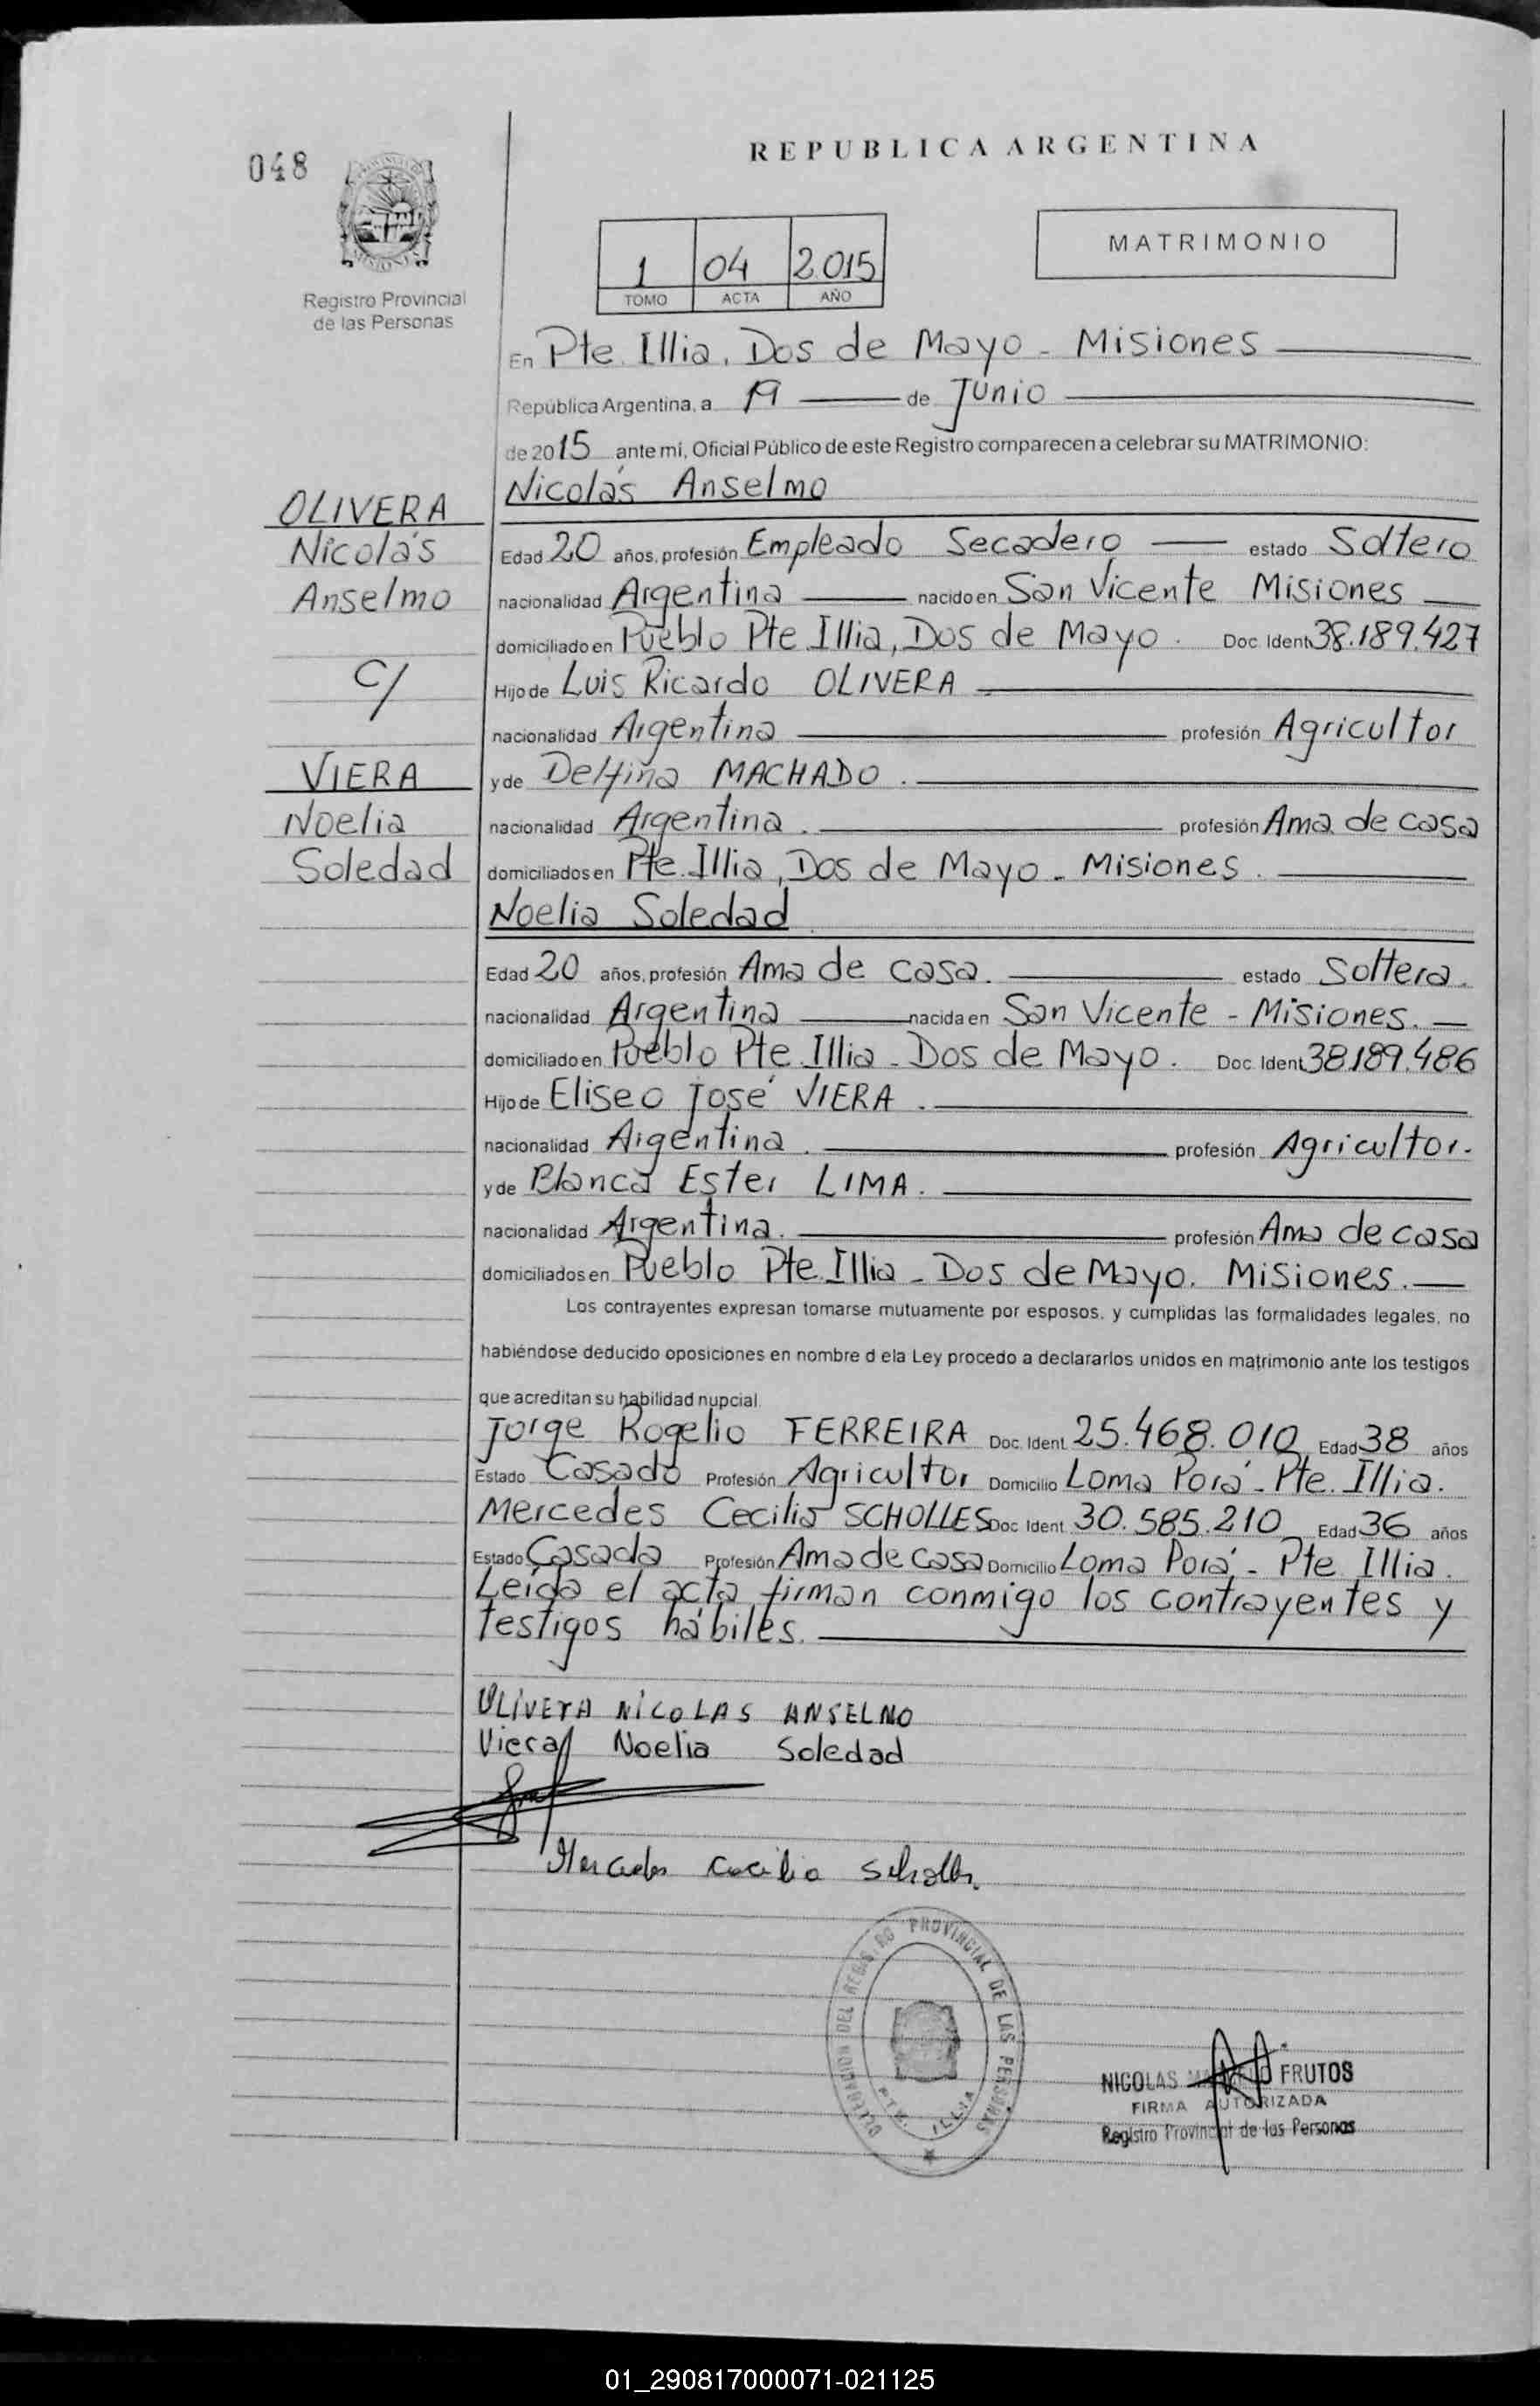 048
REPUBLICA ARGENTINA
MATRIMONIO
1 04 2015
TOMO ACTA AÑO
Registro Provincial
de las Personas
En Pte. Illia, Dos de Mayo - Misiones
República Argentina, a 19 de Junio
de 2015 ante mi, Oficial Público de este Registro comparecen a celebrar su MATRIMONIO:
Nicolás Anselmo
OLIVERA
Nicolás
Anselmo
C/
VIERA
Noelia
Soledad
Edad 20 años, profesión Empleado Secadero estado Soltero
nacionalidad Argentina nacido en San Vicente Misiones
domiciliado en Pueblo Pte Illia, Dos de Mayo. Doc. Ident. 38.189.427
Hijo de Luis Ricardo OLIVERA
nacionalidad Argentina profesión Agricultor
y de Delfina MACHADO.
nacionalidad Argentina. profesión Ama de casa
domiciliados en Pte. Illia, Dos de Mayo - Misiones.
Noelia Soledad
Edad 20 años, profesión Ama de casa. estado Soltera.
nacionalidad Argentina nacida en San Vicente - Misiones.
domiciliado en Pueblo Pte. Illia - Dos de Mayo. Doc. Ident. 38.189.486
Hijo de Eliseo José VIERA.
nacionalidad Argentina. profesión Agricultor.
y de Blanca Ester LIMA.
nacionalidad Argentina. profesión Ama de casa
domiciliados en Pueblo Pte. Illia - Dos de Mayo. Misiones.
Los contrayentes expresan tomarse mutuamente por esposos, y cumplidas las formalidades legales, no
habiéndose deducido oposiciones en nombre d ela Ley procedo a declararlos unidos en matrimonio ante los testigos
que acreditan su habilidad nupcial.
Jorge Rogelio FERREIRA Doc. Ident. 25.468.010 Edad 38 años
Estado Casado Profesión Agricultor Domicilio Loma Porá - Pte. Illia.
Mercedes Cecilia SCHOLLES Doc. Ident. 30.585.210 Edad 36 años
Estado Casada Profesión Ama de casa Domicilio Loma Porá - Pte Illia.
Leída el acta firman conmigo los contrayentes y
testigos hábiles.
OLIVERA NICOLAS ANSELMO
Viera Noelia Soledad
Mercedes Cecilia Scholles
DELEGACION DEL REGISTRO PROVINCIAL DE LAS PERSONAS
PTE. ILLIA
NICOLAS FRUTOS
FIRMA AUTORIZADA
Registro Provincial de las Personas
01_290817000071-021125